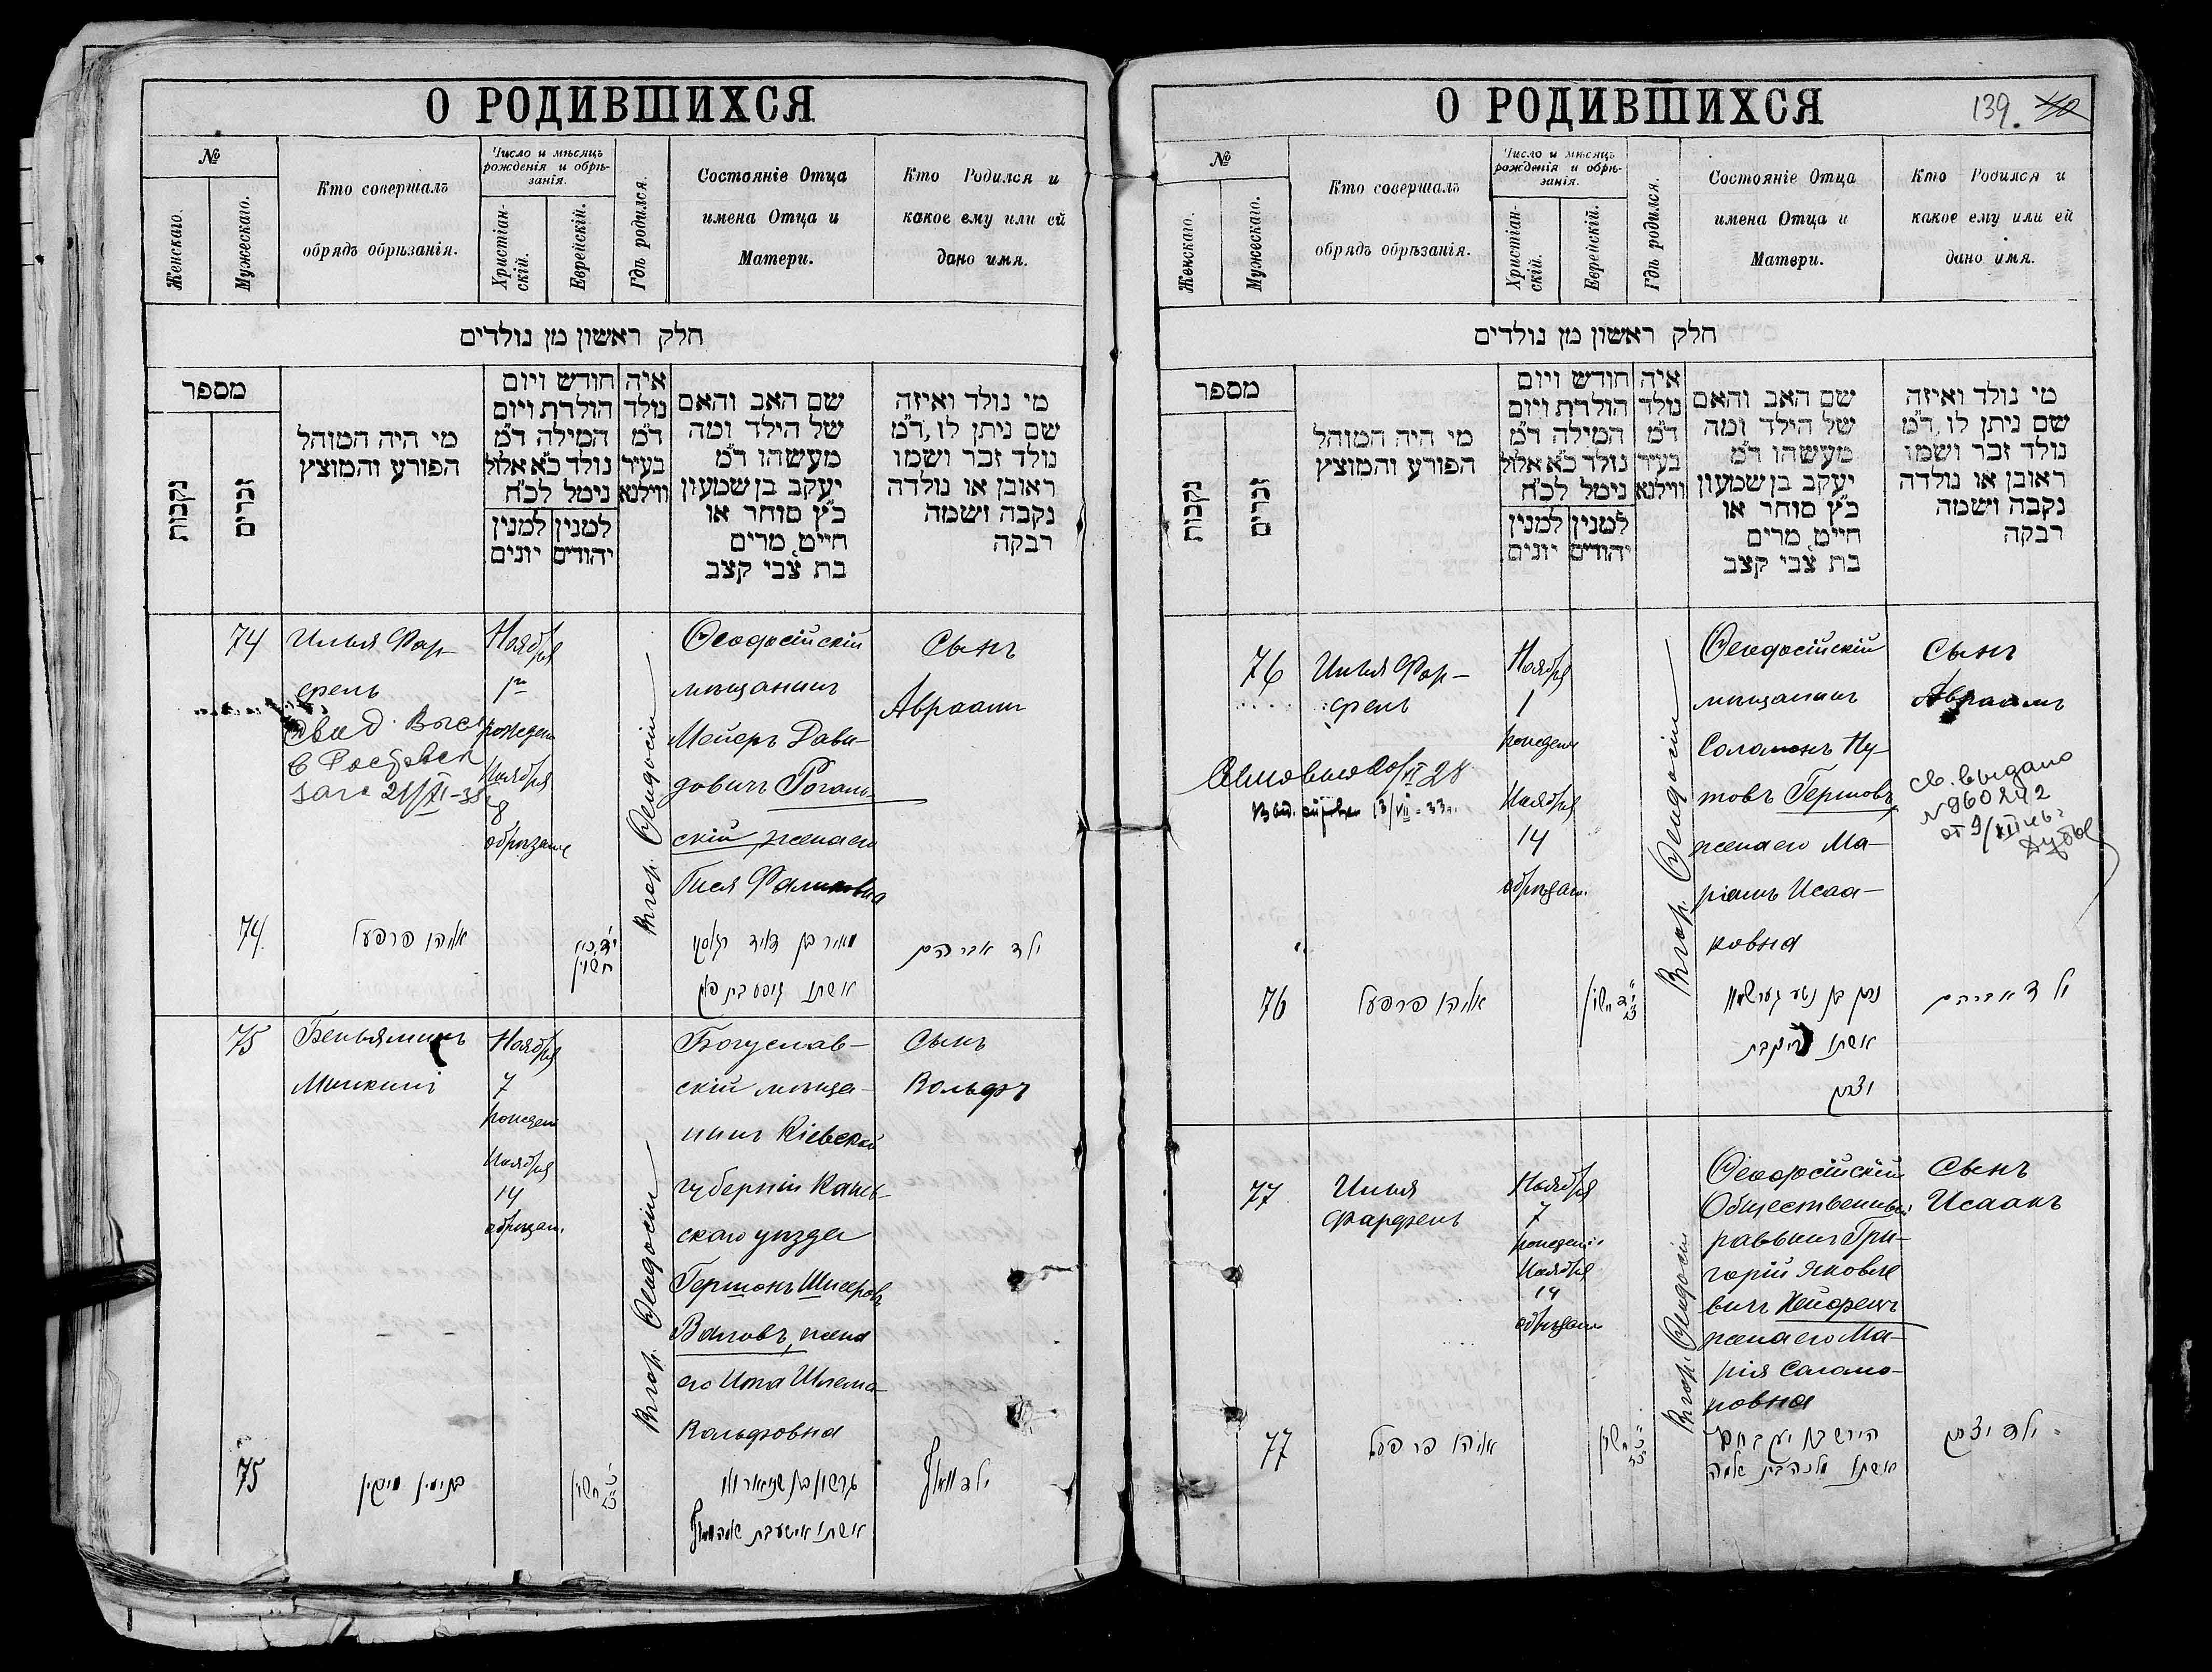 О РОДИВШИХСЯ
№
Женскаго.
Мужескаго.
Кто совершалъ
обрядъ обрѣзанія.
Число и мѣсяцъ
рожденія и обрѣ-
занія.
Христіан-
скій.
Еврейскій.
Гдѣ родился.
Состояніе Отца
имена Отца и
Матери.
Кто Родился и
какое ему или ей
дано имя.
חלק ראשון מן נולדים
מספר
נקבות
זכרים
מי היה המוהל
הפורע והמוצץ
חודש ויום
הולדת ויום
המילה ד״מ
נולד כ״א אלול
נימל לכ״ח
למנין
יונים
למנין
יהודים
איה
נולד
ד״מ
בעיר
ווילנא
שם האב והאם
של הילד ומה
מעשהו ד״מ
יעקב בן שמעון
כ״ץ סוחר או
חייט, מרים
בת צבי קצב
מי נולד ואיזה
שם ניתן לו, ד״מ
נולד זכר ושמו
ראובן או נולדה
נקבה ושמה
רבקה
74
Илья Фар-
фель
Ноября
1го
рожден
Ноября
8
обрѣзаніе
В гор. Ѳеодосіи
Ѳеодосійскій
мѣщанинъ
Мейеръ Дави-
довичъ Рогаль-
скій, жена его
Гися Фаликовна
Сынъ
Авраамъ
74
אליהו פרפעל
חשון
מאיר בן דוד
אשתו גיסע בת
ילד אברהם
75
Беньяминъ
Минкинъ
Ноября
7
рожден
Ноября
14
обрѣзан.
В гор. Ѳеодосіи
Богуслав-
скій мѣща-
нинъ Кіевской
губерніи Канев-
скаго уѣзда
Гершонъ Шнееровъ
Валовъ, жена
его Ита Шлема-
Вольфовна
Сынъ
Вольфъ
75
בנימין מינקין
חשון
גרשון בן שניאור
ילד וואלף
О РОДИВШИХСЯ
139.
№
Женскаго.
Мужескаго.
Кто совершалъ
обрядъ обрѣзанія.
Число и мѣсяцъ
рожденія и обрѣ-
занія.
Христіан-
скій.
Еврейскій.
Гдѣ родился.
Состояніе Отца
имена Отца и
Матери.
Кто Родился и
какое ему или ей
дано имя.
חלק ראשון מן נולדים
מספר
נקבות
זכרים
מי היה המוהל
הפורע והמוצץ
חודש ויום
הולדת ויום
המילה ד״מ
נולד כ״א אלול
נימל לכ״ח
למנין
יונים
למנין
יהודים
איה
נולד
ד״מ
בעיר
ווילנא
שם האב והאם
של הילד ומה
מעשהו ד״מ
יעקב בן שמעון
כ״ץ סוחר או
חייט, מרים
בת צבי קצב
מי נולד ואיזה
שם ניתן לו, ד״מ
נולד זכר ושמו
ראובן או נולדה
נקבה ושמה
רבקה
76
Илья Фар-
фель
Ноября
1
рожден
Ноября
14
обрѣзан.
В гор. Ѳеодосіи
Ѳеодосійскій
мѣщанинъ
Саламонъ Ну-
товъ Гершовъ
жена его Ма-
ріамъ Исаа-
ковна
Сынъ
Авраамъ
св. выдано
№960242
76
אליהו פרפעל
חשון
אשתו
יצחק
ילד אברהם
77
Илья
Фарфель
Ноября
7
рожден.
Ноября
14
обрѣзан
В гор. Ѳеодосіи
Ѳеодосійскій
Общественный
раввинъ Гри-
горій Яковле
вичъ Хейфецъ
жена его Ма-
рія Саламо-
новна
Сынъ
Исаакъ
77
אליהו פרפעל
חשון
הירש בן יעקב
אשתו מלכה בת שלמה
ילד יצחק